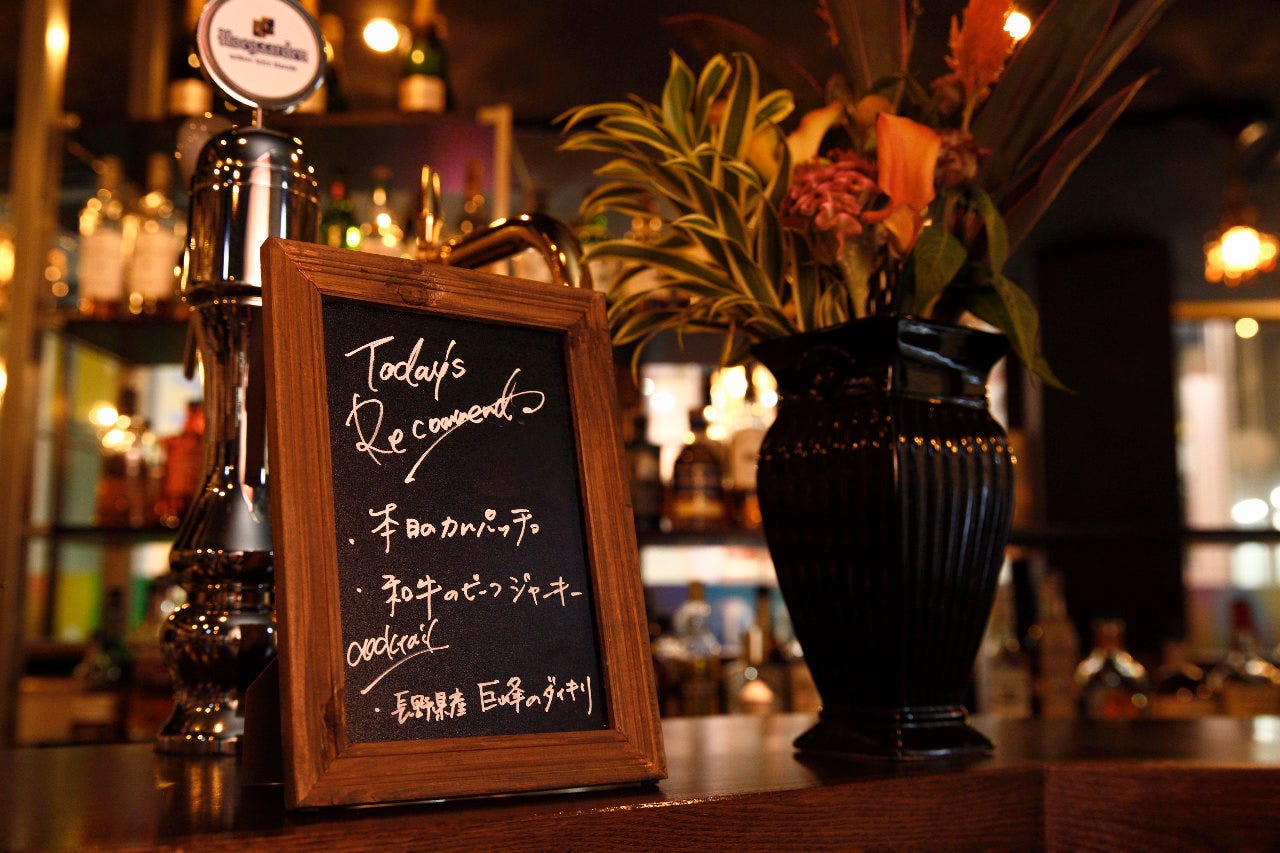 Hoegaarden
Today's
Recommends
・本日のカルパッチョ
・和牛のビーフジャーキー
cocktail
・長野県産 巨峰のダイキリ